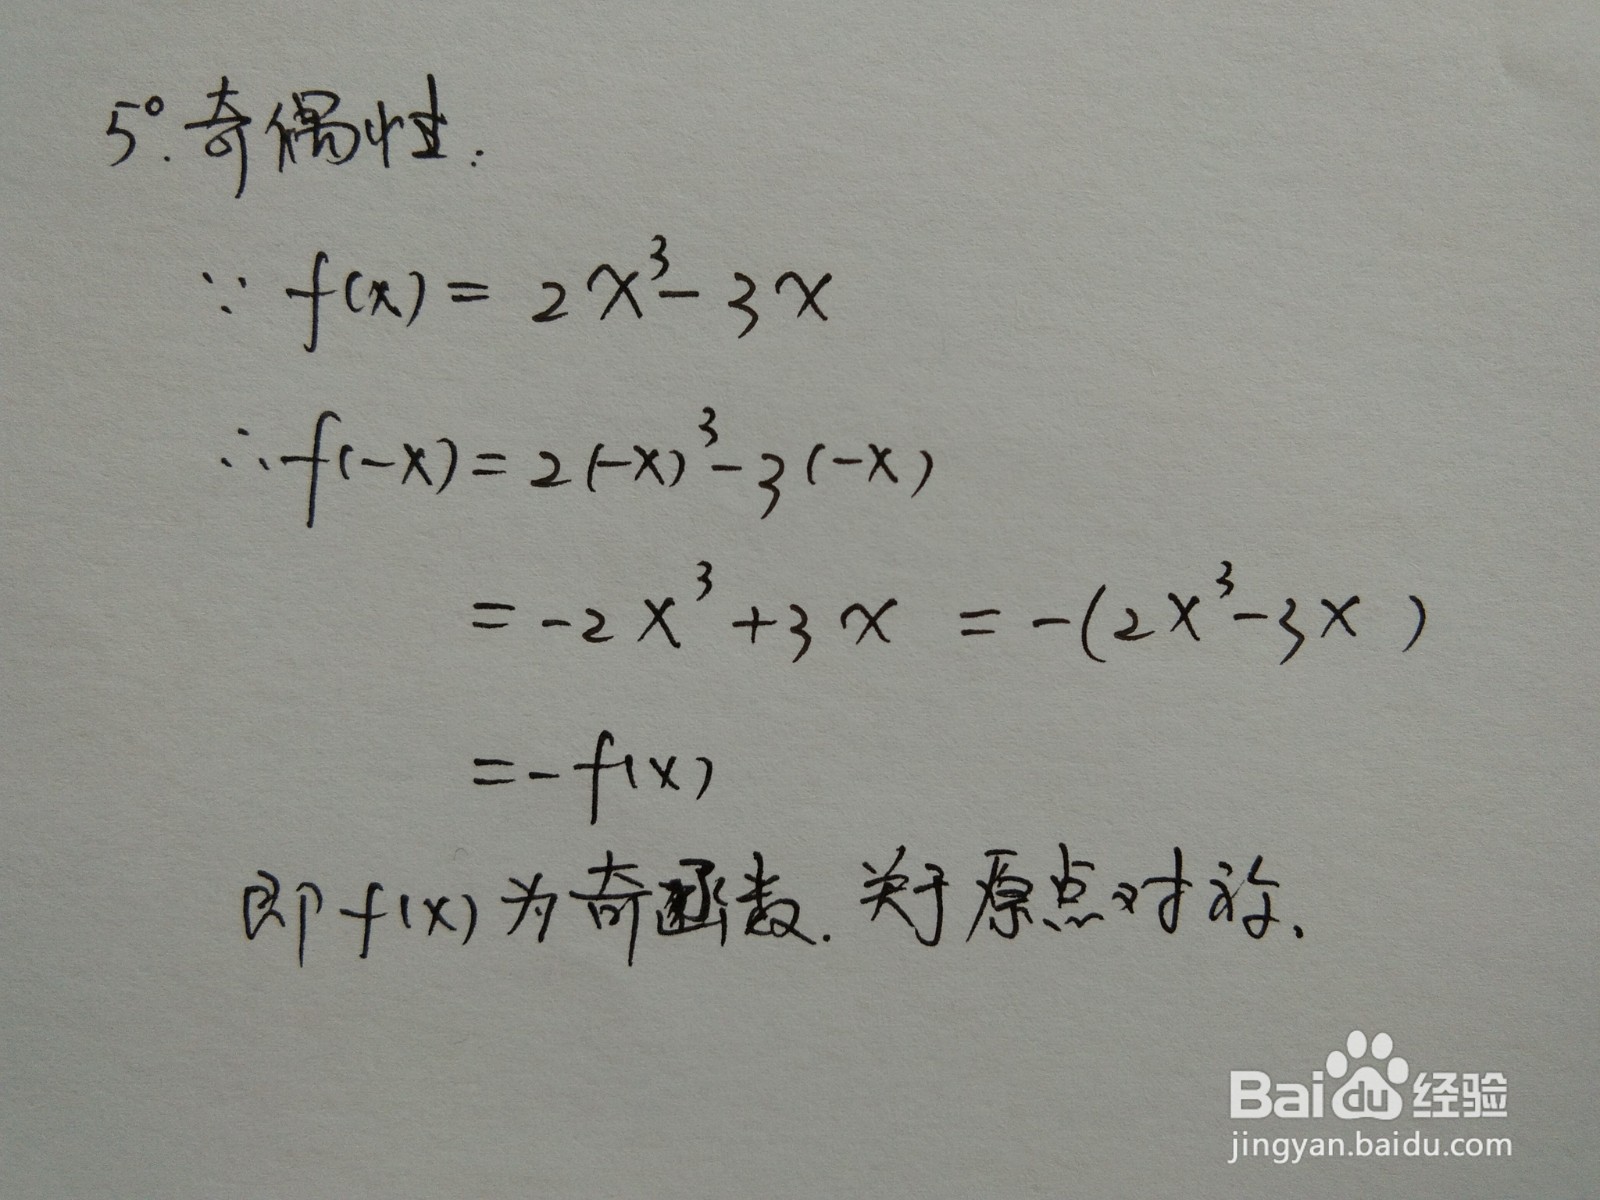 5°.奇偶性.
∵ f(x) = 2x³-3x
∴ f(-x) = 2(-x)³-3(-x)
= -2x³+3x = -(2x³-3x)
= -f(x)
即f(x)为奇函数.关于原点对称.
Baidu经验
jingyan.baidu.com